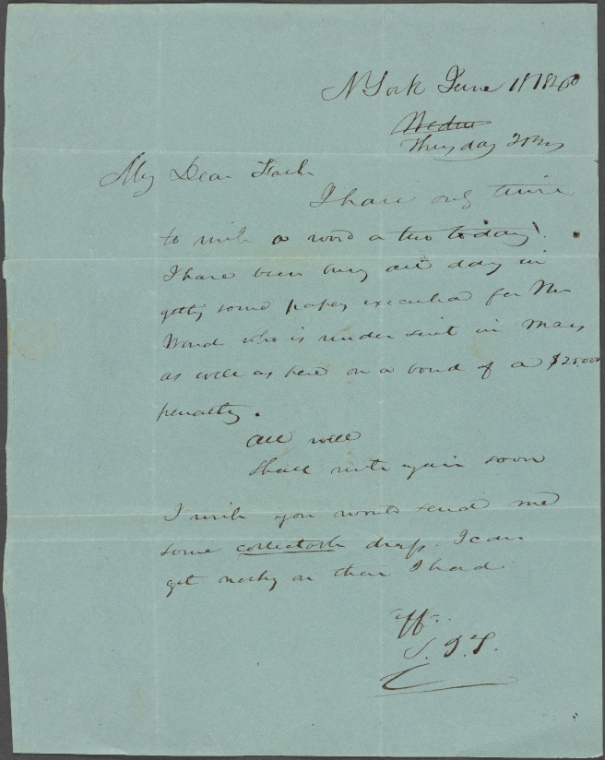 N York June 1860
Wednes
Thursday
My Dear Fath
I have only time
to write a word or two today!
I have been busy all day in
getting some papers executed for Mr
Ward who is under suit in Mass
as well as here on a bond of a $25.000
penalty.
All well
Shall write again soon
I wish you would send me
some drafts. I can
get on those I had
Aff.